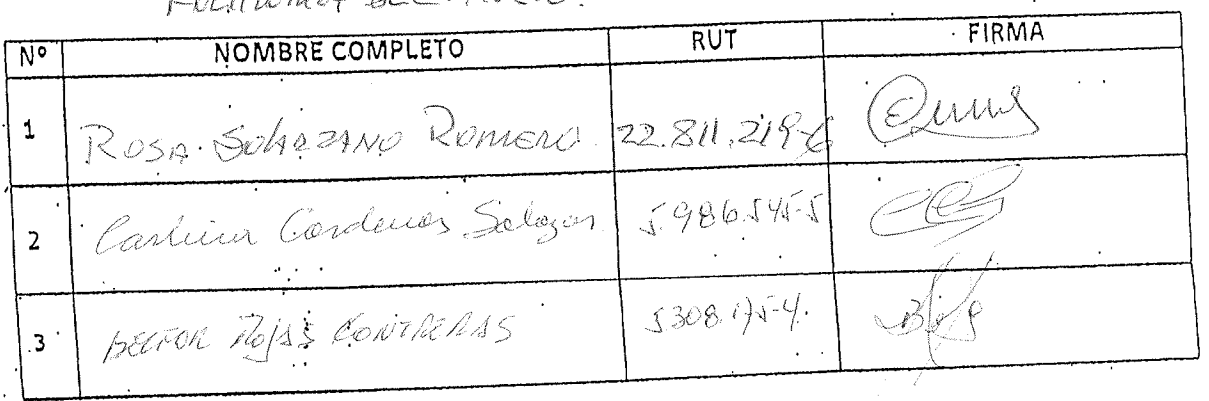 Nº NOMBRE COMPLETO RUT FIRMA
1 ROSA SOLORZANO ROMERO 22.811.219-6
2 Cardenas Salazar 5.986.545-5
3 ROJAS CONTRERAS 5308.175-4.